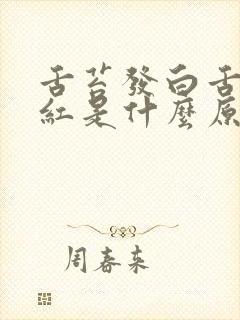 舌苔發白舌
紅是什麼原
周春来